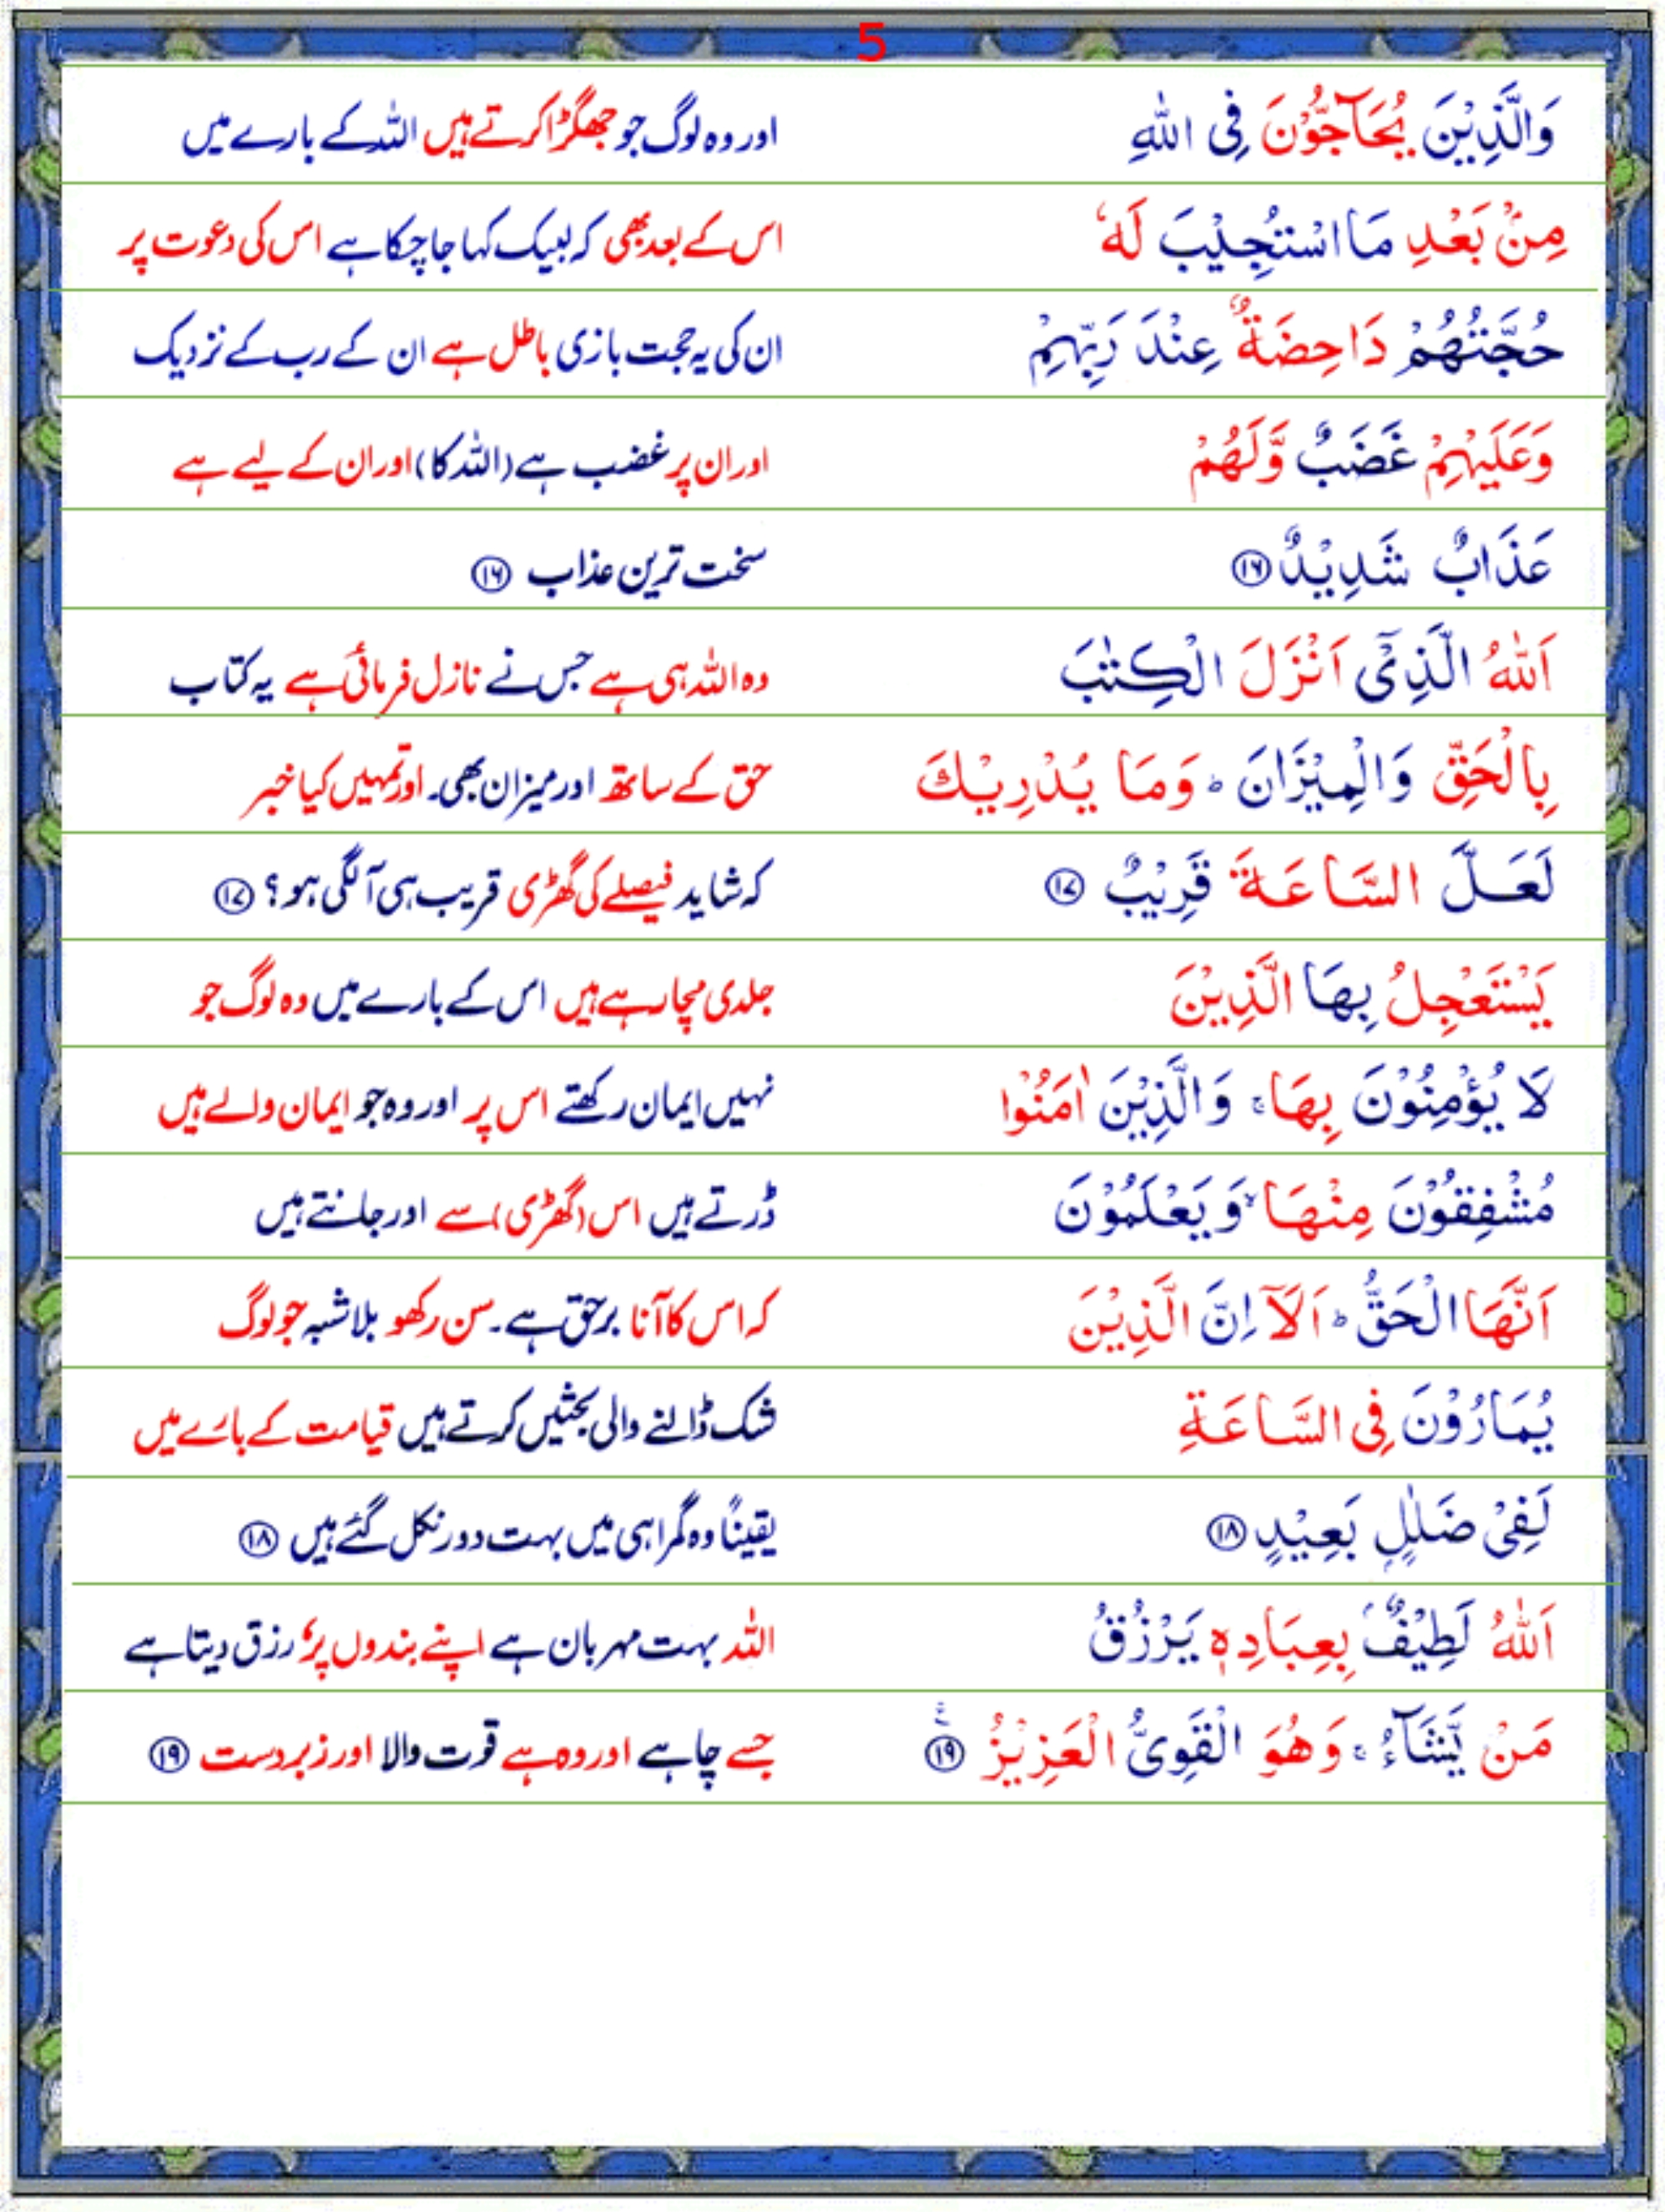 5
وَالَّذِيْنَ يُحَآجُّوْنَ فِى اللّٰهِ اور وہ لوگ جو جھگڑا کرتے ہیں اللہ کے بارے میں
مِنْۢ بَعْدِ مَا اسْتُجِيْبَ لَهٗ اس کے بعد بھی کہ لبیک کہا جا چکا ہے اس کی دعوت پر
حُجَّتُهُمْ دَاحِضَةٌ عِنْدَ رَبِّهِمْ ان کی یہ حجت بازی باطل ہے ان کے رب کے نزدیک
وَعَلَيْهِمْ غَضَبٌ وَّلَهُمْ اور ان پر غضب ہے (اللہ کا) اور ان کے لیے ہے
عَذَابٌ شَدِيْدٌ ۝۱۶ سخت ترین عذاب ۝۱۶
اَللّٰهُ الَّذِىْٓ اَنْزَلَ الْكِتٰبَ وہ اللہ ہی ہے جس نے نازل فرمائی ہے یہ کتاب
بِالْحَقِّ وَالْمِيْزَانَ ؕ وَمَا يُدْرِيْكَ حق کے ساتھ اور میزان بھی۔ اور تمہیں کیا خبر
لَعَلَّ السَّاعَةَ قَرِيْبٌ ۝۱۷ کہ شاید فیصلے کی گھڑی قریب ہی آ لگی ہو؟ ۝۱۷
يَسْتَعْجِلُ بِهَا الَّذِيْنَ جلدی مچا رہے ہیں اس کے بارے میں وہ لوگ جو
لَا يُؤْمِنُوْنَ بِهَا ۚ وَالَّذِيْنَ اٰمَنُوْا نہیں ایمان رکھتے اس پر اور وہ جو ایمان والے ہیں
مُشْفِقُوْنَ مِنْهَا ۙ وَيَعْلَمُوْنَ ڈرتے ہیں اس (گھڑی) سے اور جانتے ہیں
اَنَّهَا الْحَقُّ ؕ اَلَآ اِنَّ الَّذِيْنَ کہ اس کا آنا برحق ہے۔ سن رکھو بلاشبہ جو لوگ
يُمَارُوْنَ فِى السَّاعَةِ شک ڈالنے والی بحثیں کرتے ہیں قیامت کے بارے میں
لَفِىْ ضَلٰلٍۭ بَعِيْدٍ ۝۱۸ یقیناً وہ گمراہی میں بہت دور نکل گئے ہیں ۝۱۸
اَللّٰهُ لَطِيْفٌۢ بِعِبَادِهٖ يَرْزُقُ اللہ بہت مہربان ہے اپنے بندوں پر، رزق دیتا ہے
مَنْ يَّشَآءُ ۚ وَهُوَ الْقَوِىُّ الْعَزِيْزُ ۝۱۹ جسے چاہے اور وہ ہے قوت والا اور زبردست ۝۱۹